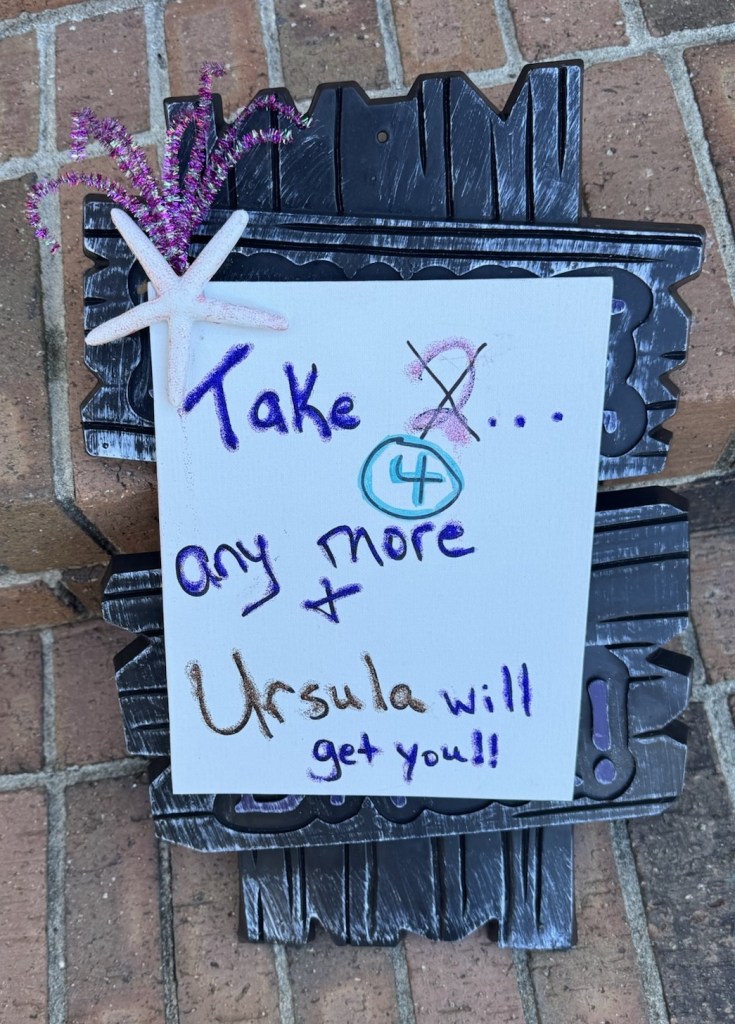 Take 2...
4
any more
+
Ursula will
get you!!
!